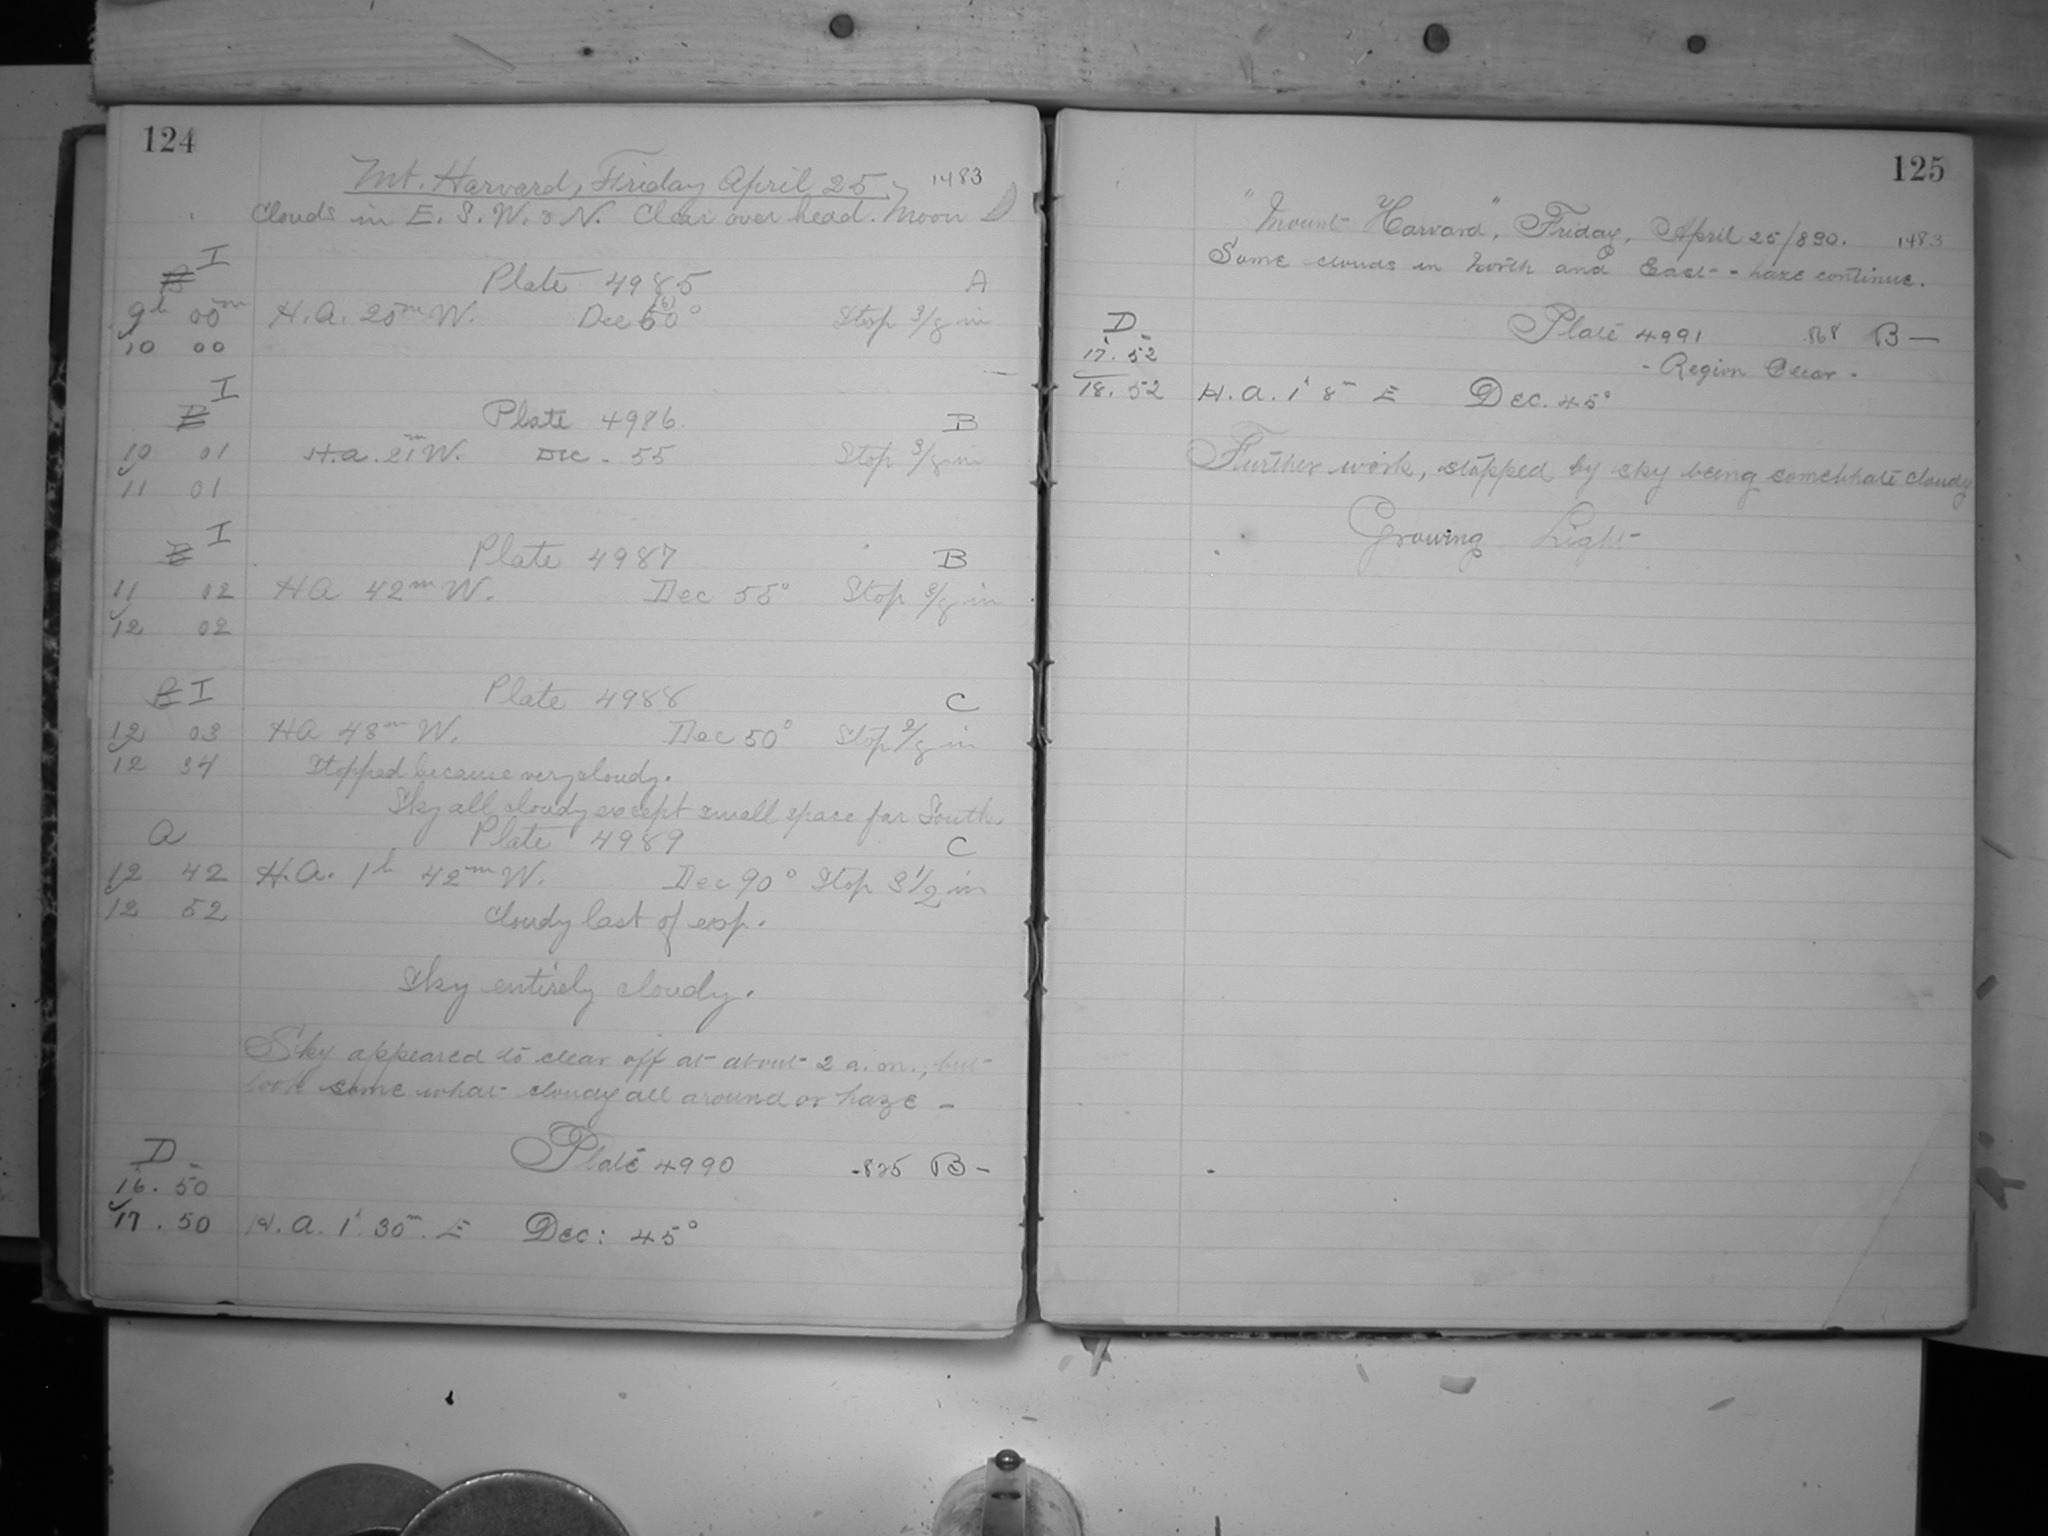 124
Mt. Harvard, Friday April 25 1483
Clouds in E. S. W. & N. Clear over head. Moon
I
B Plate 4985 A
9h 00m H.A. 20m W. Dec 60° (6) Stop 3/8 in
10 00
I
B Plate 4986 B
10 01 H.a. 21m W. Dec - 55 Stop 3/8 in
11 01
I
B Plate 4987 B
11 02 HA 42m W. Dec 55° Stop 3/8 in
12 02
B I Plate 4988 C
12 03 HA 48m W. Dec 50° Stop 3/8 in
12 34 Stopped because very cloudy.
Sky all cloudy except small space far South
a Plate 4989 C
12 42 H.A. 1h 42m W. Dec 90° Stop 3 1/2 in
12 52 Cloudy last of exp.
Sky entirely cloudy.
Sky appeared to clear off at about 2 a.m., but
look some what cloudy all around or haze -
D Plate 4990 .825 B-
16. 50
17. 50 H.A. 1h 30m. E Dec: 45°
125
"Mount Harvard", Friday, April 25/890. 1483
Some clouds in North and East - haze continue.
D Plate 4991 .868 B—
17. 52 - Region Clear -
18. 52 H.A. 1h 8m E Dec. 45°
Further work, stopped by sky being somewhate cloudy
Growing Light-